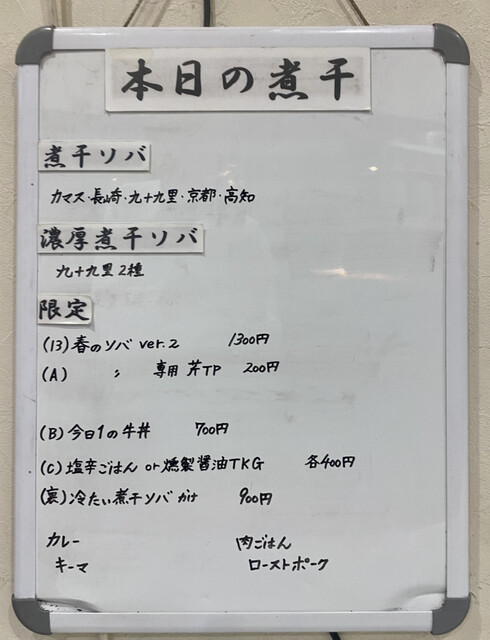 本日の煮干
煮干ソバ
カマス・長崎・九十九里・京都・高知
濃厚煮干ソバ
九十九里2種
限定
(13) 春のソバ ver.2 1300円
(A) 〃 専用 芹TP 200円
(B) 今日1の牛丼 700円
(C) 塩辛ごはん or 燻製醤油TKG 各400円
(裏) 冷たい煮干ソバ かけ 900円
カレー 肉ごはん
キーマ ローストポーク